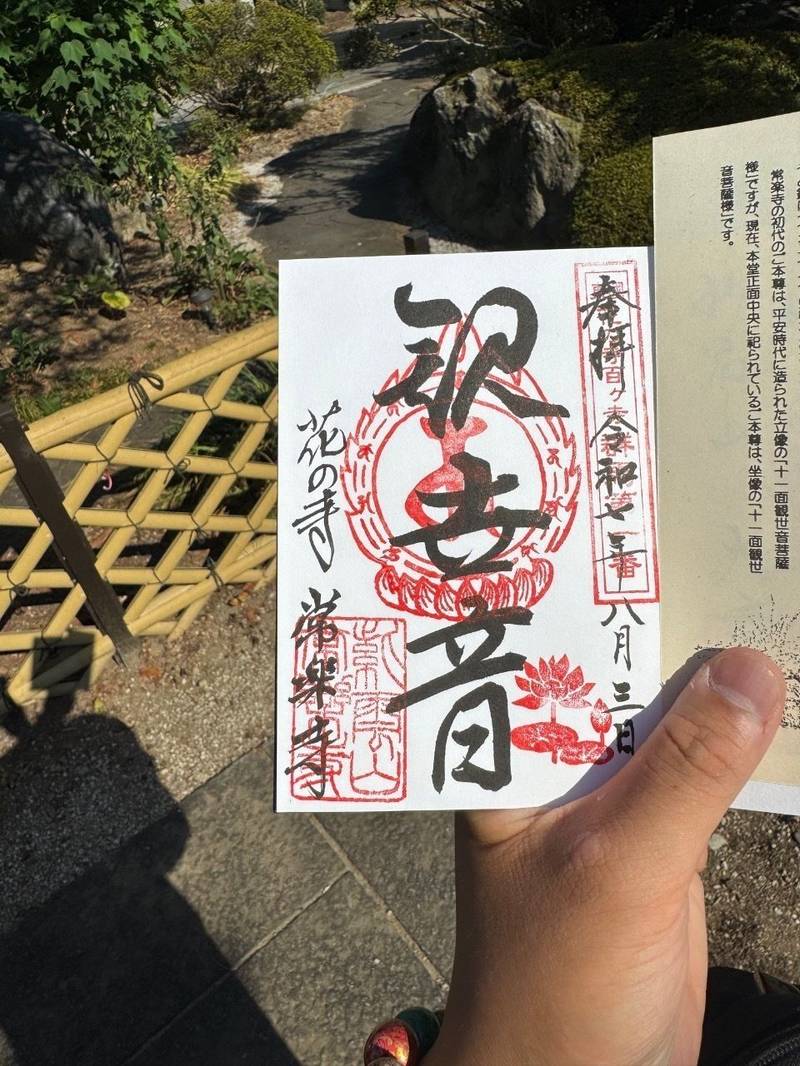 常楽寺の初代のご本尊は、平安時代に造られた立像の「十一面観世音菩薩
様」ですが、現在、本堂正面中央に祀られているご本尊は、坐像の「十一面観世
音菩薩様」です。
奉拝 令和七年八月三日
百ヶ寺
観世音
花の寺 常楽寺